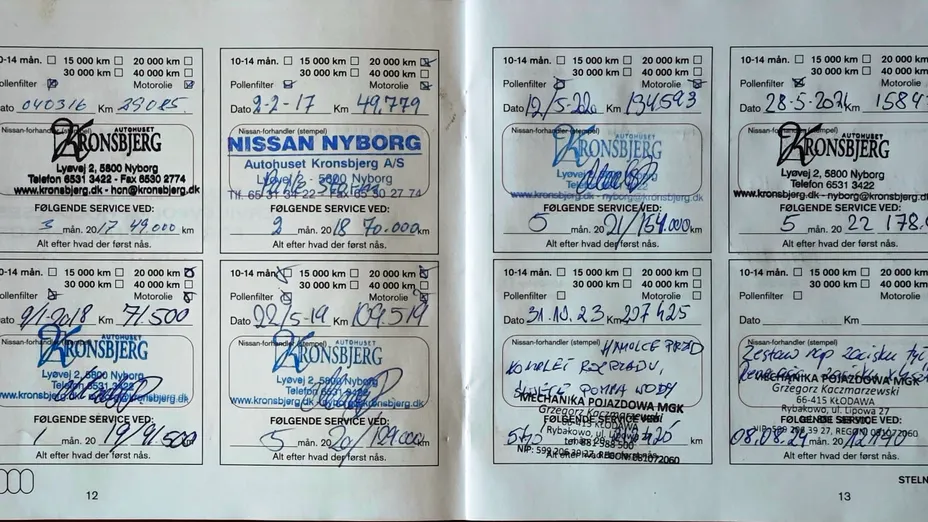 10-14 mån. 15 000 km 20 000 km
30 000 km
Pollenfilter Motorolie
Dato 040316 Km
Nissan-forhandler (stempel)
AUTOHUSET
KRONSBJERG
Lyøvej 2, 5800 Nyborg
Telefon 6531 3422 - Fax 6530 2774
www.kronsbjerg.dk - hon@kronsbjerg.dk
FØLGENDE SERVICE VED:
3 mån. 20 17 49000 km
Alt efter hvad der først nås.
10-14 mån. 15 000 km 20 000 km
30 000 km
Pollenfilter Motorolie
Dato 2-2-17 Km 49,779
NISSAN NYBORG
Autohuset Kronsbjerg A/S
Lyøvej 2 - 5800 Nyborg
Tlf. 65 31 34 22 - Fax 65 30 27 74
FØLGENDE SERVICE VED:
2 mån. 20 18 70.000 km
Alt efter hvad der først nås.
10-14 mån. 15 000 km 20 000 km
30 000 km
Pollenfilter Motorolie
Dato 9/1-2018 Km 71.500
Nissan-forhandler (stempel)
AUTOHUSET
KRONSBJERG
Lyøvej 2, 5800 Nyborg
Telefon 6531 3422
www.kronsbjerg.dk
FØLGENDE SERVICE VED:
1 mån. 20 19/91.500
Alt efter hvad der først nås.
10-14 mån. 15 000 km 20 000 km
30 000 km
Pollenfilter Motorolie
Dato 22/5-19 Km 109.519
Nissan-forhandler (stempel)
AUTOHUSET
KRONSBJERG
Lyøvej 2, 5800 Nyborg
FØLGENDE SERVICE VED:
5 mån. 20 20/129.000 km
Alt efter hvad der først nås.
12
10-14 mån. 15 000 km 20 000 km
30 000 km
Pollenfilter Motorolie
Dato 12/5-220 Km 134.593
Nissan-forhandler (stempel)
AUTOHUSET
KRONSBJERG
Lyøvej 2, 5800 Nyborg
FØLGENDE SERVICE VED:
5 mån. 20 21/154.000 km
Alt efter hvad der først nås.
10-14 mån. 15 000 km 20 000
30 000 km
Pollenfilter Motorolie
Dato 28-5-2021 Km 1584
Nissan-forhandler (stempel)
AUTOHUSET
KRONSBJERG
Lyøvej 2, 5800 Nyborg
Telefon 6531 3422
www.kronsbjerg.dk - nyborg@kronsbjerg.dk
FØLGENDE SERVICE VED:
5 mån. 20 22 178.
Alt efter hvad der først nås.
10-14 mån. 15 000 km 20 000 km
30 000 km
Pollenfilter Motorolie
Dato 31.10.23 Km 207425
Nissan-forhandler (stempel)
HAMULCE PRZÓD
KOMPLET ROZRZĄDU,
POMPA WODY
MECHANIKA POJAZDOWA MGK
Grzegorz Kaczmarzewski
66-415 KŁODAWA
Rybakowo, ul. Lipowa 27
FØLGENDE SERVICE VED:
mån. 20 km
NIP: 599 206 39 27, REGON: 081072060
Alt efter hvad der først nås.
10-14 mån. 15 000 km 20 000
30 000 km
Pollenfilter Motorolie
Dato Km
Nissan-forhandler (stempel)
Zestaw nap zacisku tył
MECHANIKA POJAZDOWA MGK
Grzegorz Kaczmarzewski
66-415 KŁODAWA
Rybakowo, ul. Lipowa 27
FØLGENDE SERVICE VED:
NIP: 599 206 39 27, REGON: 081072060
08.08.24 mån. 20
Alt efter hvad der først nås.
STELN
13